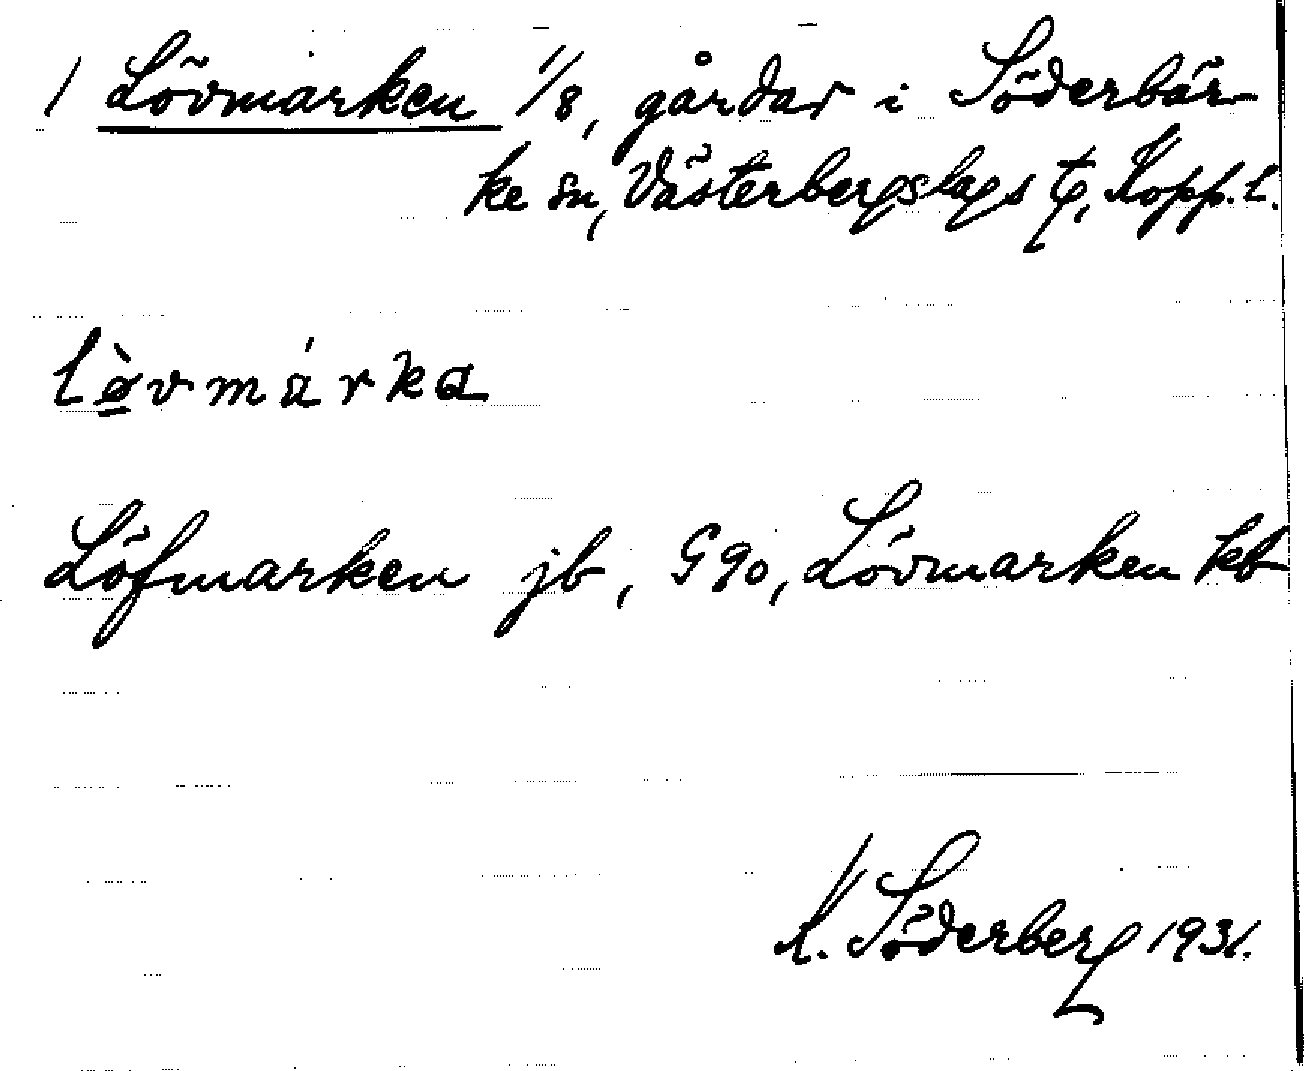 1 Lövmarken 1/8, gårdar i Söderbär-
ke sn, Västerbergslags tg, Kopp. l.
lø̱̀vmárka
Löfmarken jb, G 90, Lövmarken kb
K. Söderberg 1931.